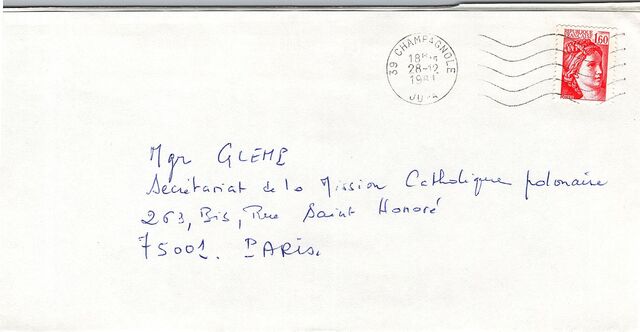 39 CHAMPAGNOLE
18H
28-12
1981
JURA
REPUBLIQUE FRANCAISE
1,60
Mgr GLEMP
Secrétariat de la Mission Catholique polonaise
263, Bis, Rue Saint Honoré
75001. PARIS.